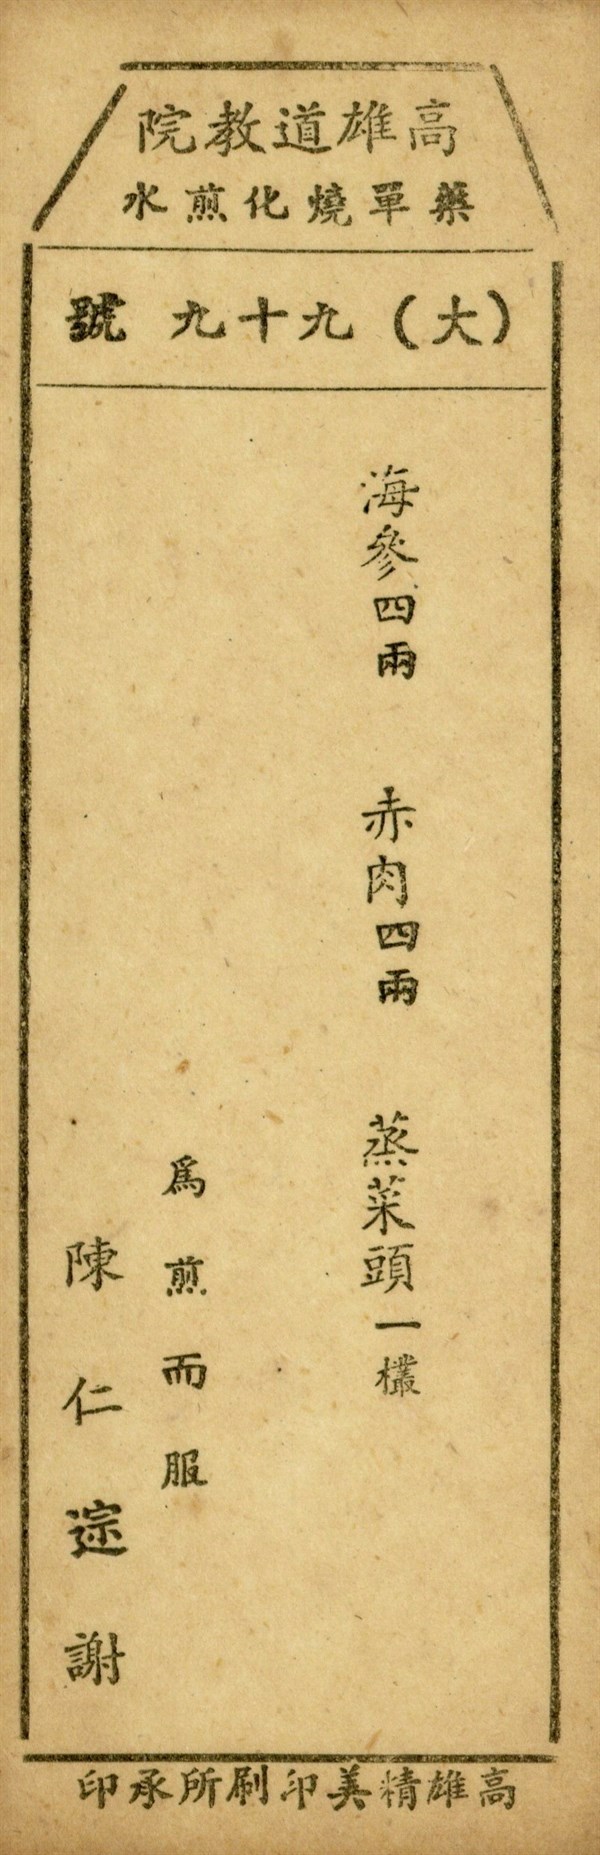 高雄道教院
藥單燒化煎水
（大）九十九號
海參四兩　赤肉四兩　蒸菜頭一欉
為煎而服
陳仁逨謝
高雄精美印刷所承印